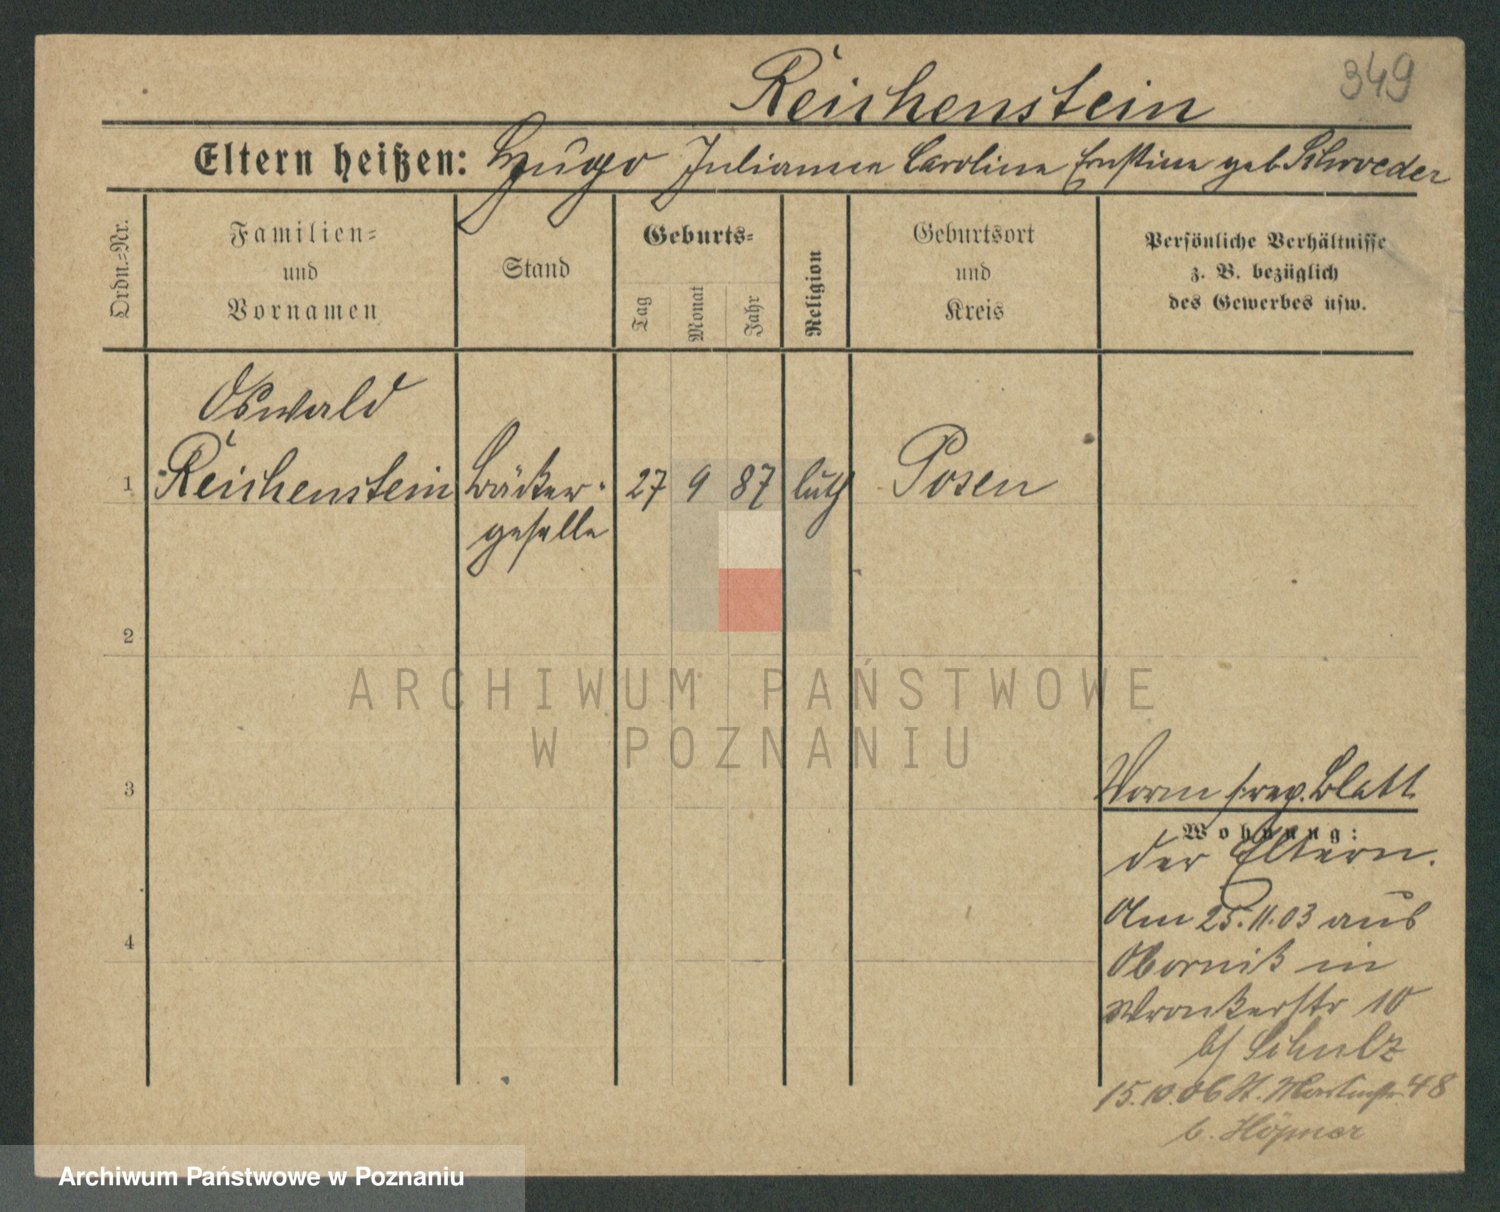 349
Reichenstein
Eltern heißen: Hugo Julianna Caroline Ernstine geb Schroeder
Ordn.-Nr.
Familien-
und
Vornamen
Stand
Geburts-
Tag
Monat
Jahr
Religion
Geburtsort
und
Kreis
Persönliche Verhältnisse
z. B. bezüglich
des Gewerbes usw.
Oswald
1 Reichenstein Bäcker- 27 9 87 luth Posen
geselle
2
ARCHIWUM PAŃSTWOWE
W POZNANIU
3
Vorm Blatt
Wohnung:
der Eltern.
Am 25.11.03 aus
Obornik in
Wronkerstr 10
b/ Schulz
15.10.06 St. Martinstr. 48
b. Höpner
4
Archiwum Państwowe w Poznaniu